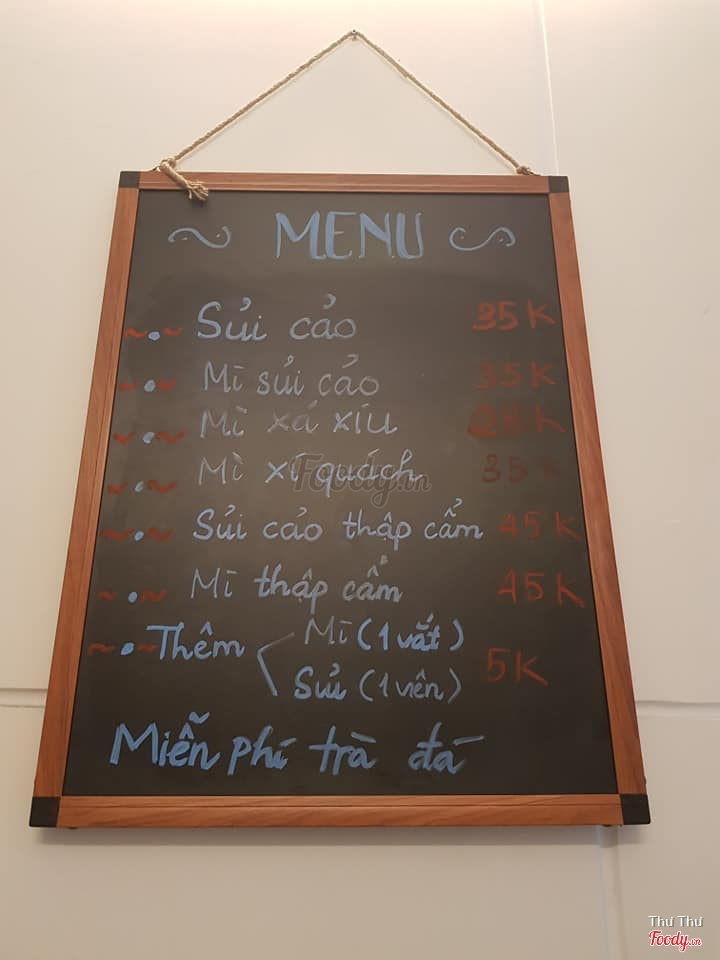 MENU
Sủi cảo 35K
Mì sủi cảo 35K
Mì xá xíu 28K
Mì xí quách 35K
Sủi cảo thập cẩm 45K
Mì thập cẩm 45K
Thêm Mì (1 vắt) 5K
Sủi (1 viên)
Miễn phí trà đá
Foody.vn
Thư Thư
Foody.vn